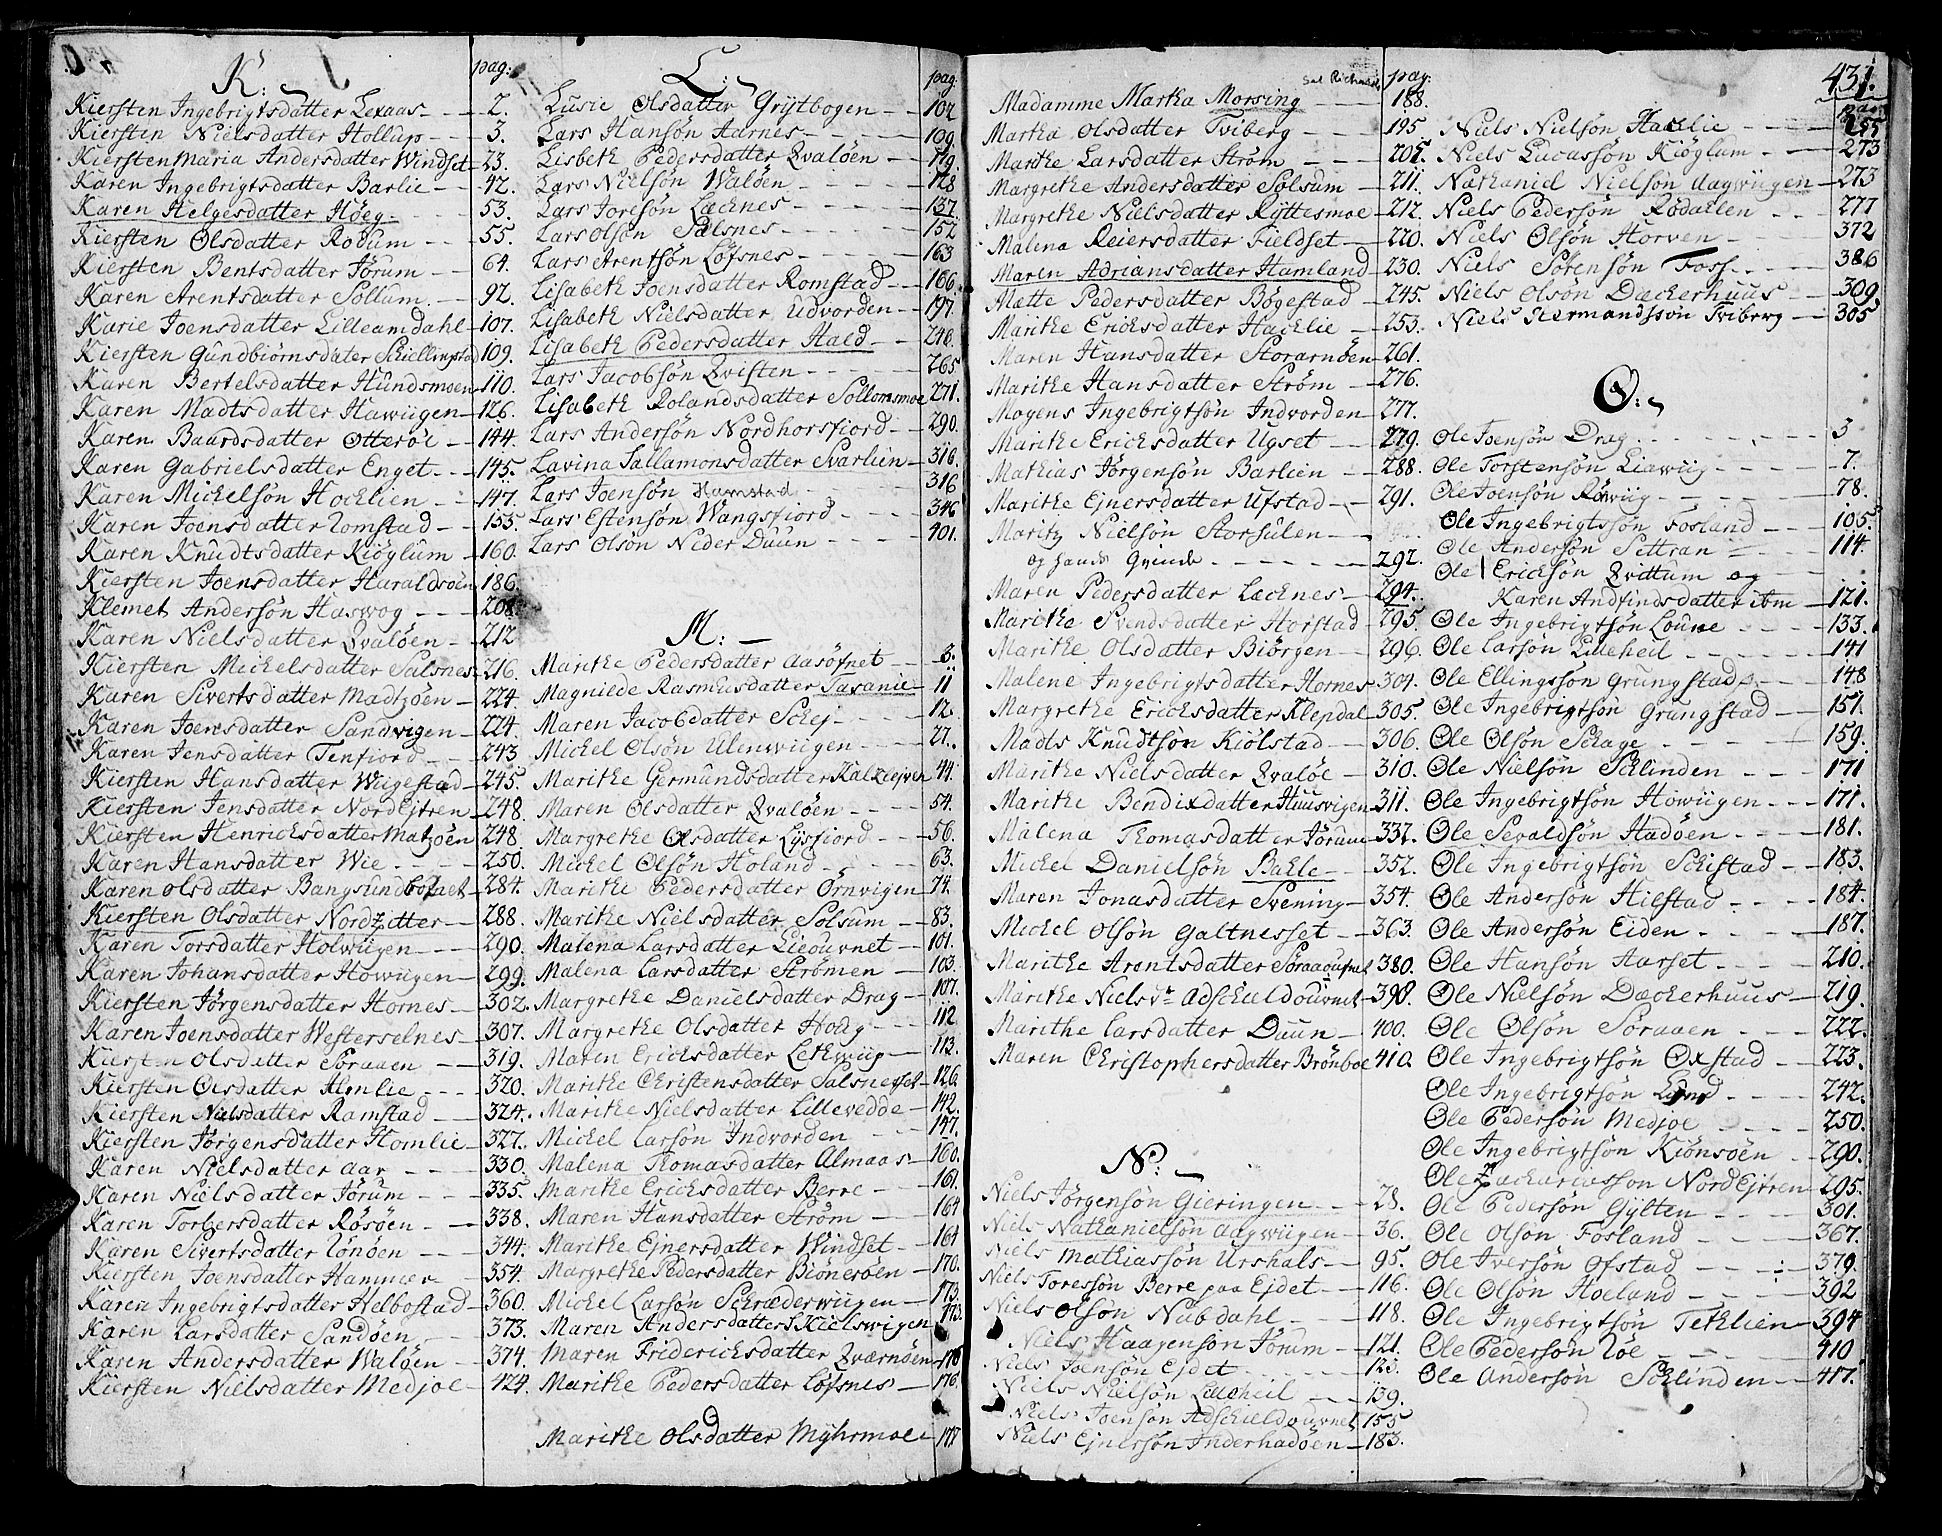 K:
pag:
Kiersten Ingebrigtsdatter Lexaas 2.
Kiersten Nielsdatter Hollup 3.
Kiersten Maria Andersdatter Windset 23.
Karen Ingebrigtsdatter Barlie 42.
Karen Helgesdatter Høeg 53.
Kiersten Olsdatter Rodum 55.
Kiersten Bentsdatter Jørum 64.
Karen Arentsdatter Sollum 92.
Karie Joensdatter Lilleamdahl 107.
Kiersten Gundbiørnsdater Schiellingstad 109.
Karen Bertelsdatter Hundsmoen 110.
Karen Madtsdatter Hawiigen 126.
Karen Baardsdatter Otterøe 144.
Karen Gabrielsdatter Enget 145.
Karen Michelsøn Hocklien 147.
Karen Joensdatter Romstad 155.
Karen Knudtsdatter Kiøglum 160.
Kiersten Joensdatter Haraldsøen 186.
Klemet Andersøn Haswog 208.
Karen Nielsdatter Qvaløen 212
Kiersten Mickelsdatter Salsnes 216.
Karen Sivertsdatter Madtzøen 224.
Karen Joensdatter Sandvigen 224.
Karen Jensdatter Tenfiord 243
Kiersten Hansdatter Wiigestad 245.
Kiersten Jensdatter Nordejtren 248.
Kiersten Henricksdatter Matzøen 248.
Karen Hansdatter Wie 250.
Karen Olsdatter Bangsundbotnet 284.
Kiersten Olsdatter Nordzitter 288.
Karen Torsdatter Holwiigen 290.
Karen Johansdatter Howiigen 299.
Kiersten Jørgensdatter Hornes 302.
Karen Joensdatter Westerselnes 307.
Kiersten Olsdatter Soraaen 319.
Kiersten Olsdatter Homlie 320.
Kiersten Nielsdatter Ramstad 324.
Kiersten Jørgensdatter Homlie 327.
Karen Nielsdatter Aar 330.
Karen Nielsdatter Jørum 335.
Karen Torbersdatter Røsøen 338.
Karen Sivertsdatter Lønøen 344.
Kiersten Joensdatter Hammer 354.
Karen Ingebrigtsdatter Helbostad 360.
Karen Larsdatter Sandøen 373.
Karen Andersdatter Waløen 374.
Kiersten Nielsdatter Medjoe 424.
L:
pag:
Lusie Olsdatter Grytbogen 102
Lars Hansøn Aarnes 109.
Lisbeth Pedersdatter Qvaløen 119.
Lars Nielsøn Waløen 128
Lars Joresøn Læcknes 137.
Lars Olsøn Salsnes 152
Lars Arentsøn Løfsnes 163
Lisabeth Joensdatter Romstad 166.
Lisabeth Nielsdatter Udvorden 197.
Lisabeth Pedersdatter Hald 248.
Lars Jacobsøn Qvisten 265
Lisabeth Rolandsdatter Sollomsmoe 271.
Lars Andersøn Nordhorsfiord 290.
Lavina Sallamonsdatter Svarlien 316.
Lars Joensøn Hamstad 316
Lars Estensøn Wangsfiord 346
Lars Olsøn Neder Duun 401.
M:
Marithe Pedersdatter Aasøfnet 3.
Magnilde Rasmusdatter Tasanie 11
Maren Jacobdatter Schej 12.
Mickel Olsøn Ulenwiigen 27.
Marithe Germundsdatter Kalklejven 44.
Maren Olsdatter Qvaløen 54.
Margrethe Olsdatter Lysfiord 56.
Mickel Olsøn Høland 63.
Marithe Pedersdatter Ørnvigen 74.
Marithe Nielsdatter Solsum 83.
Malena Larsdatter Lieourvnet 101.
Malena Larsdatter Strømen 103.
Margrethe Danielsdatter Drag 107.
Margrethe Olsdatter Hodig 112
Maren Ericksdatter Lethwiig 113.
Marithe Christensdatter Salsnesset 126.
Marithe Nielsdatter Lillevedde 142.
Mickel Larsøn Indvorden 147.
Malena Thomasdatter Almaas 160.
Marithe Ericksdatter Berre 161.
Maren Hansdatter Strøm 164
Marithe Ejnersdatter Windset 164
Margrethe Pedersdatter Biønesøen 170.
Mickel Larsøn Schræderwiigen 173.
Maren Andersdatter Kielswigen 173.
Maren Fridericksdatter Qværnøen 176
Marithe Pedersdatter Løfsnes 176.
Marithe Olsdatter Myhrmoe 177
Sal Richard
pag:
Madamme Martha Morsing 188.
Martha Olsdatter Tviberg 195.
Marithe Larsdatter Strøm 205.
Margrethe Andersdatter Solsum 211.
Margrethe Nielsdatter Ryttesmoe 212.
Malena Reiersdatter Fieldset 220.
Maren Adriansdatter Hamland 230.
Mætte Pedersdatter Bøgestad 245.
Marithe Ericksdatter Hacklie 253.
Maren Hansdatter Storarnøen 261.
Marithe Hansdatter Strøm 276.
Mogens Ingebrigtsøn Indvorden 277.
Marithe Ericksdatter Ugset 279.
Mathias Jørgensøn Barlien 288.
Marithe Ejnersdatter Ufstad 291.
Maritz Nielsøn Storsulen
og hands Qvinde 292.
Maren Pedersdatter Læcknes 294.
Marithe Svendsdatter Horstad 295
Marithe Olsdatter Biørgen 296.
Malene Ingebrigtsdatter Hornes 304.
Margrethe Ericksdatter Klepdal 305.
Madts Knudtsøn Kiølstad 306.
Marithe Nielsdatter Qvaløe 310.
Marithe Bendixdatter Huusvigen 311.
Malena Thomasdatter Jørum 337.
Mickel Danielsøn Bakle 352.
Maren Jonasdatter Svening 354.
Mickel Olsøn Galtnesset 363.
Marithe Arentsdatter Søraaourvnet 380.
Marithe Nielsdr Adschieldourvnet 398.
Marithe Larsdatter Duun 400.
Maren Christophersdatter Brønboe 410.
N:
Niels Jørgensøn Gieringen 28.
Niels Nathanielsøn Aagwiigen 36.
Niels Mathiassøn Urshals 95.
Niels Toressøn Berre paa Ejdet 116.
Niels Olsøn Nubdahl 118.
Niels Haagensøn Jørum 121.
Niels Joensøn Ejdet 123.
Niels Nielsøn Lilleheil 139.
Niels Joensøn Adschieldourvnet 155
Niels Ejnersøn Inderhadøen 183.
431.
pag:
Niels Nielsøn Hacklie 255
Niels Lucassøn Kiøglum 273
Nathaniel Nielsøn Aagwiigen 273
Niels Pedersøn Rødætlen 277
Niels Olsøn Horven 372
Niels Sørensøn Foss 386
Niels Olsøn Dæckerhuus 309
Niels Hermandssøn Tviberg 305
O:
Ole Joensøn Drag 3
Ole Torstensøn Liawiig 7.
Ole Joensøn Rørwiig 78.
Ole Ingebrigtsøn Fosland 105.
Ole Andersøn Settran 114.
Ole Ericksøn Qvittum og
Karen Andfindsdatter ibm 121.
Ole Ingebrigtsøn Loune 133.
Ole Larsøn Lilleheil 141
Ole Ellingssøn Grungstad 148
Ole Ingebrigtsøn Grungstad 151.
Ole Olsøn Schage 159.
Ole Nielsøn Schlinden 171
Ole Ingebrigtsøn Howiigen 171.
Ole Sevaldsøn Hadøen 181.
Ole Ingebrigtsøn Schistad 183.
Ole Andersøn Hilstad 184.
Ole Andersøn Eiden 187.
Ole Hansøn Harset 210.
Ole Nielsøn Dæckerhuus 219.
Ole Olsøn Soraaen 222.
Ole Ingebrigtsøn Oxstad 223.
Ole Ingebrigtsøn Lund 242.
Ole Pedersøn Medjoe 250.
Ole Ingebrigtsøn Kiønsøen 290.
Ole Zachariassøn Nordejtren 295.
Ole Pedersøn Gylten 301.
Ole Olsøn Fosland 367.
Ole Iversøn Ofstad 379.
Ole Olsøn Hoeland 392
Ole Ingebrigtsøn Teklien 394
Ole Pedersøn Løe 410
Ole Andersøn Schlinden 417.